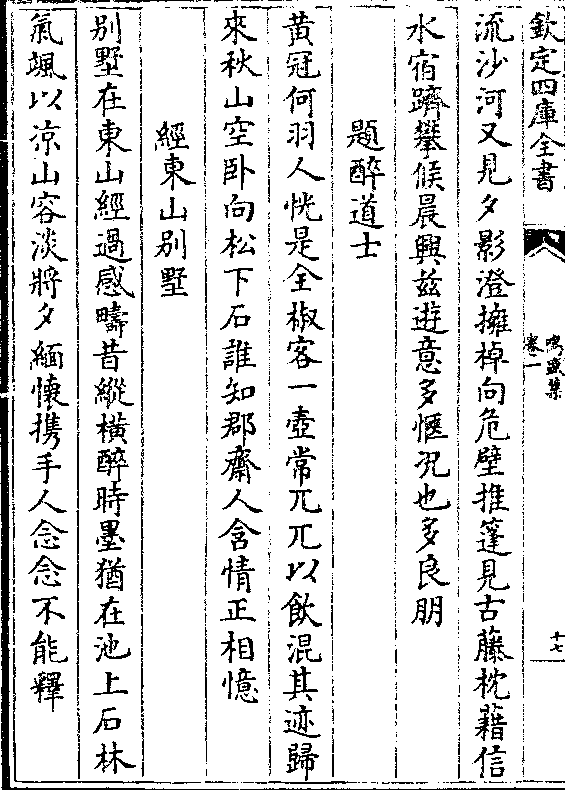 欽定四庫全書
鳴盛集
卷一
十七
流沙河又見夕影澄擁棹向危壁推篷見古藤枕藉信
水宿躋攀候晨興茲遊意多愜況也多良朋
題醉道士
黄冠何羽人恍是全椒客一壺常兀兀以飲混其迹歸
來秋山空卧向松下石誰知郡齋人含情正相憶
經東山别墅
别墅在東山經過感疇昔縱橫醉時墨猶在池上石林
氣颯以凉山容淡將夕緬懷携手人念念不能釋